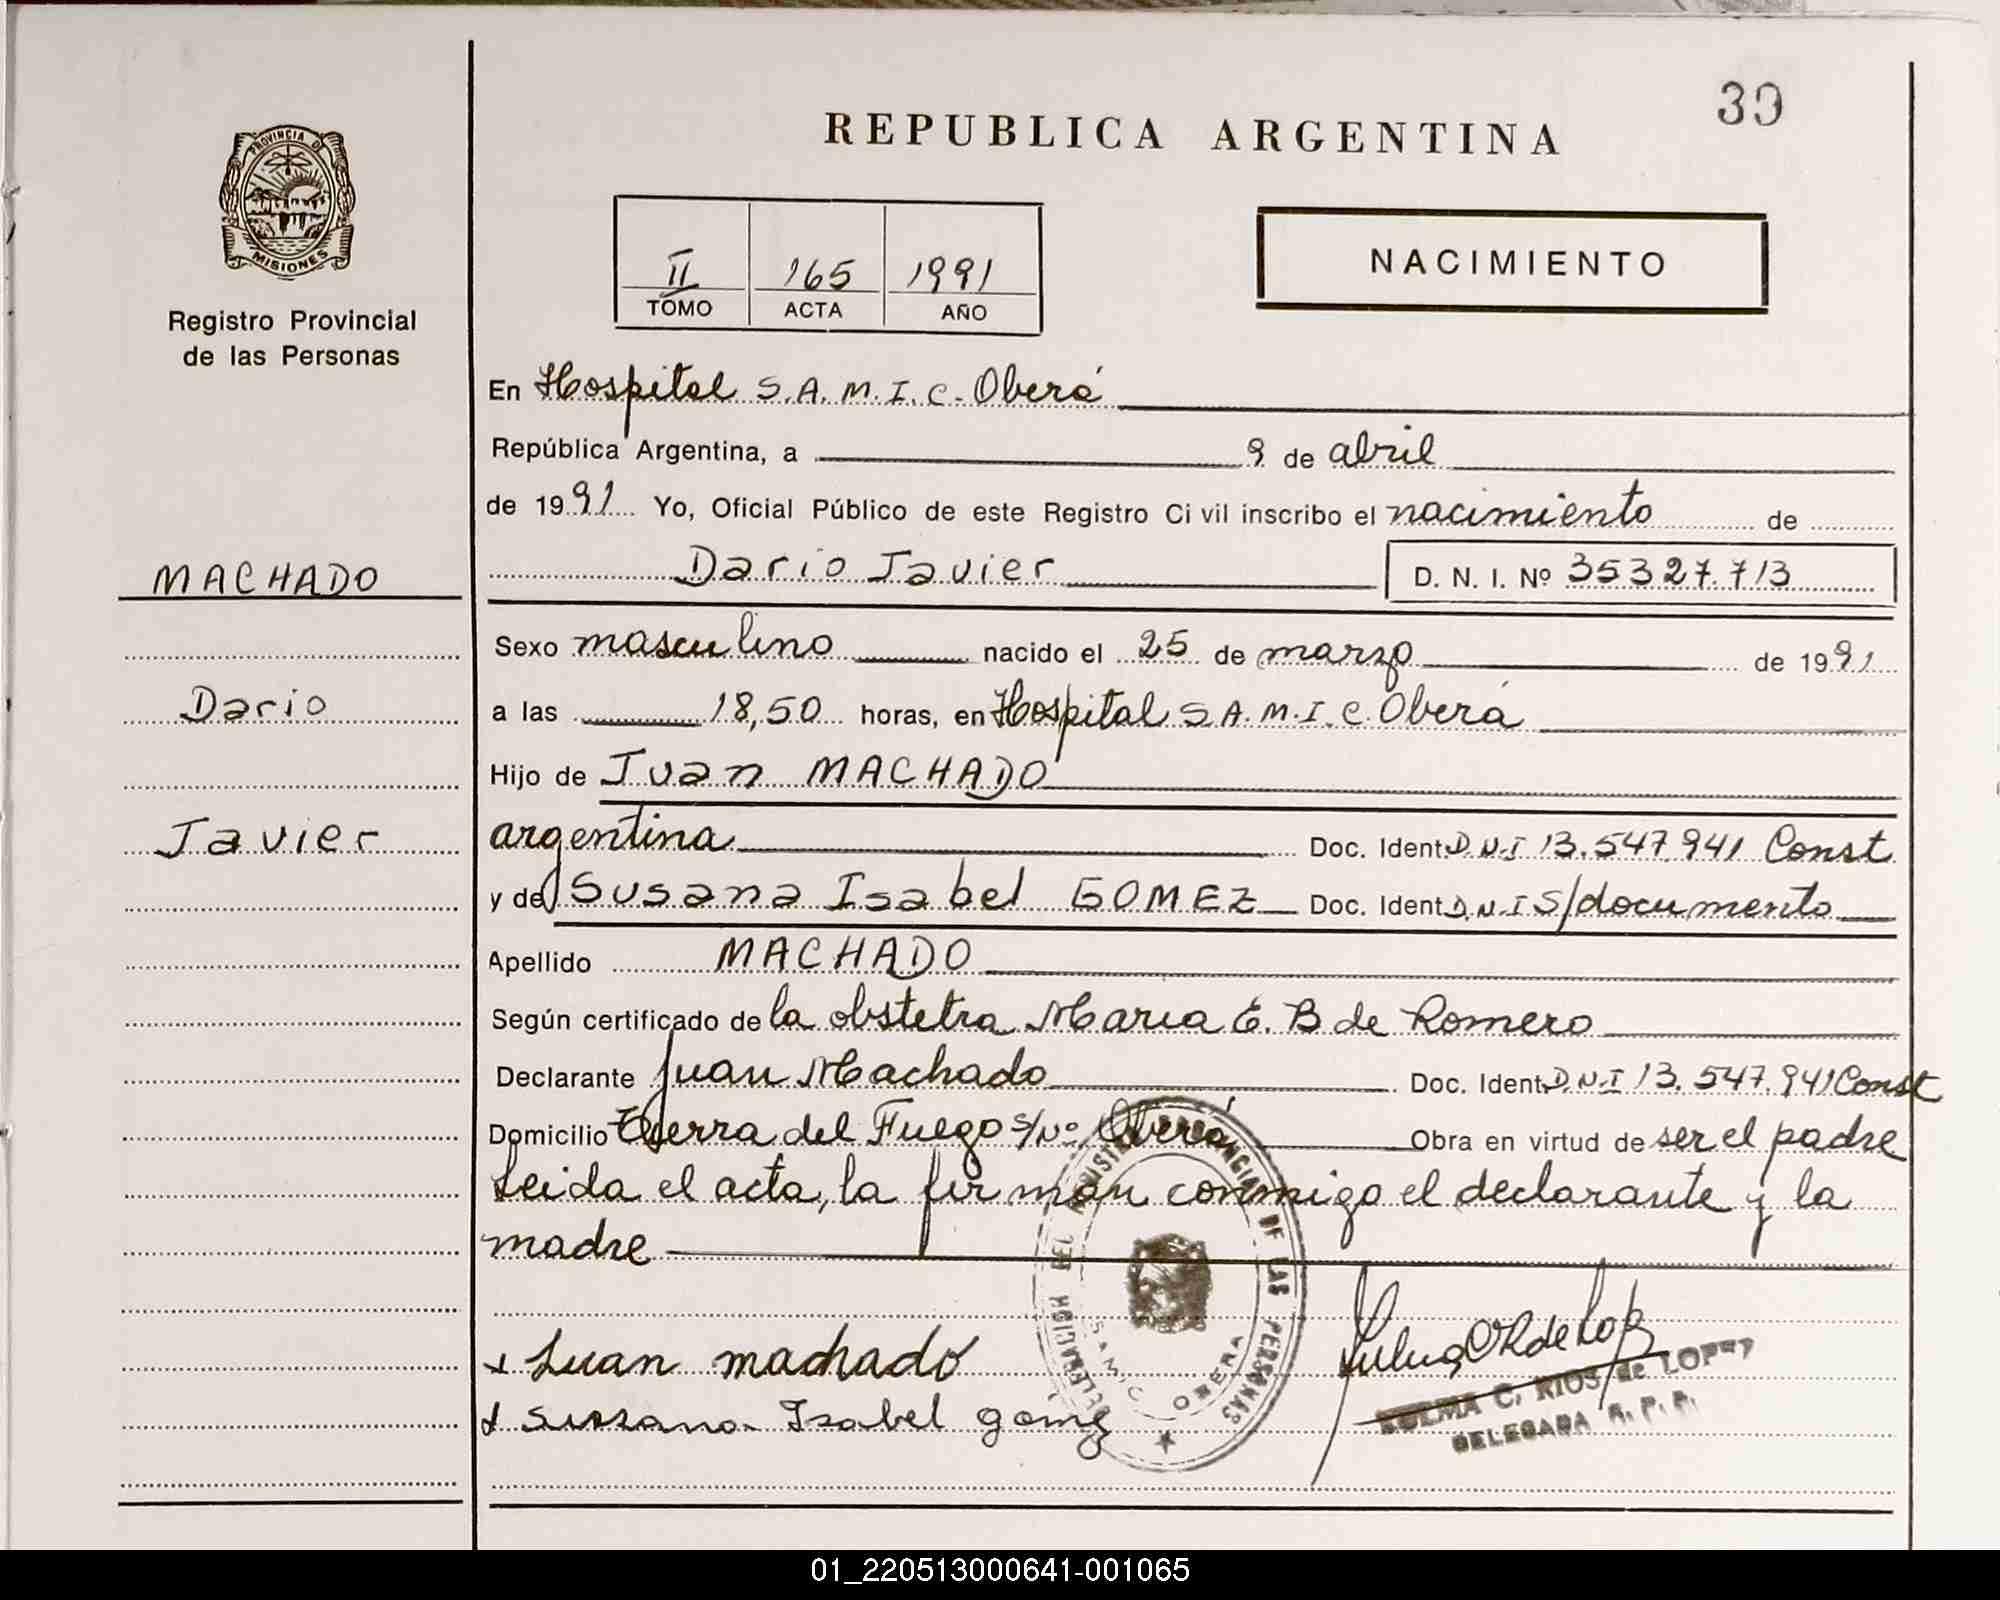 39
REPUBLICA ARGENTINA
PROVINCIA DE
MISIONES
Registro Provincial
de las Personas
II 165 1991
TOMO ACTA AÑO
NACIMIENTO
En Hospital S.A.M.I.C. Oberá
República Argentina, a 9 de abril
de 1991 Yo, Oficial Público de este Registro Civil inscribo el nacimiento de
MACHADO
Dario Javier D. N. I. Nº 35327.713
Sexo masculino nacido el 25 de marzo de 1991
Dario
a las 18,50 horas, en Hospital S.A.M.I.C. Oberá
Hijo de Juan MACHADO
Javier
argentina Doc. Ident. D.N.I 13.547.941 Const
y de Susana Isabel GOMEZ Doc. Ident. D.N.I S/documento
Apellido MACHADO
Según certificado de la obstetra Maria E. B de Romero
Declarante Juan Machado Doc. Ident. D.N.I 13.547.941 Const
Domicilio Tierra del Fuego S/Nº Oberá Obra en virtud de ser el padre
Leida el acta, la firman conmigo el declarante y la
madre
DELEGACION DEL REGISTRO PROVINCIAL DE LAS PERSONAS
S.A.M.I.C. OBERA
Juan machado
Sussana Isabel gomez
ZULMA C. RIOS de LOPEZ
DELEGADA R. P. P.
01_220513000641-001065